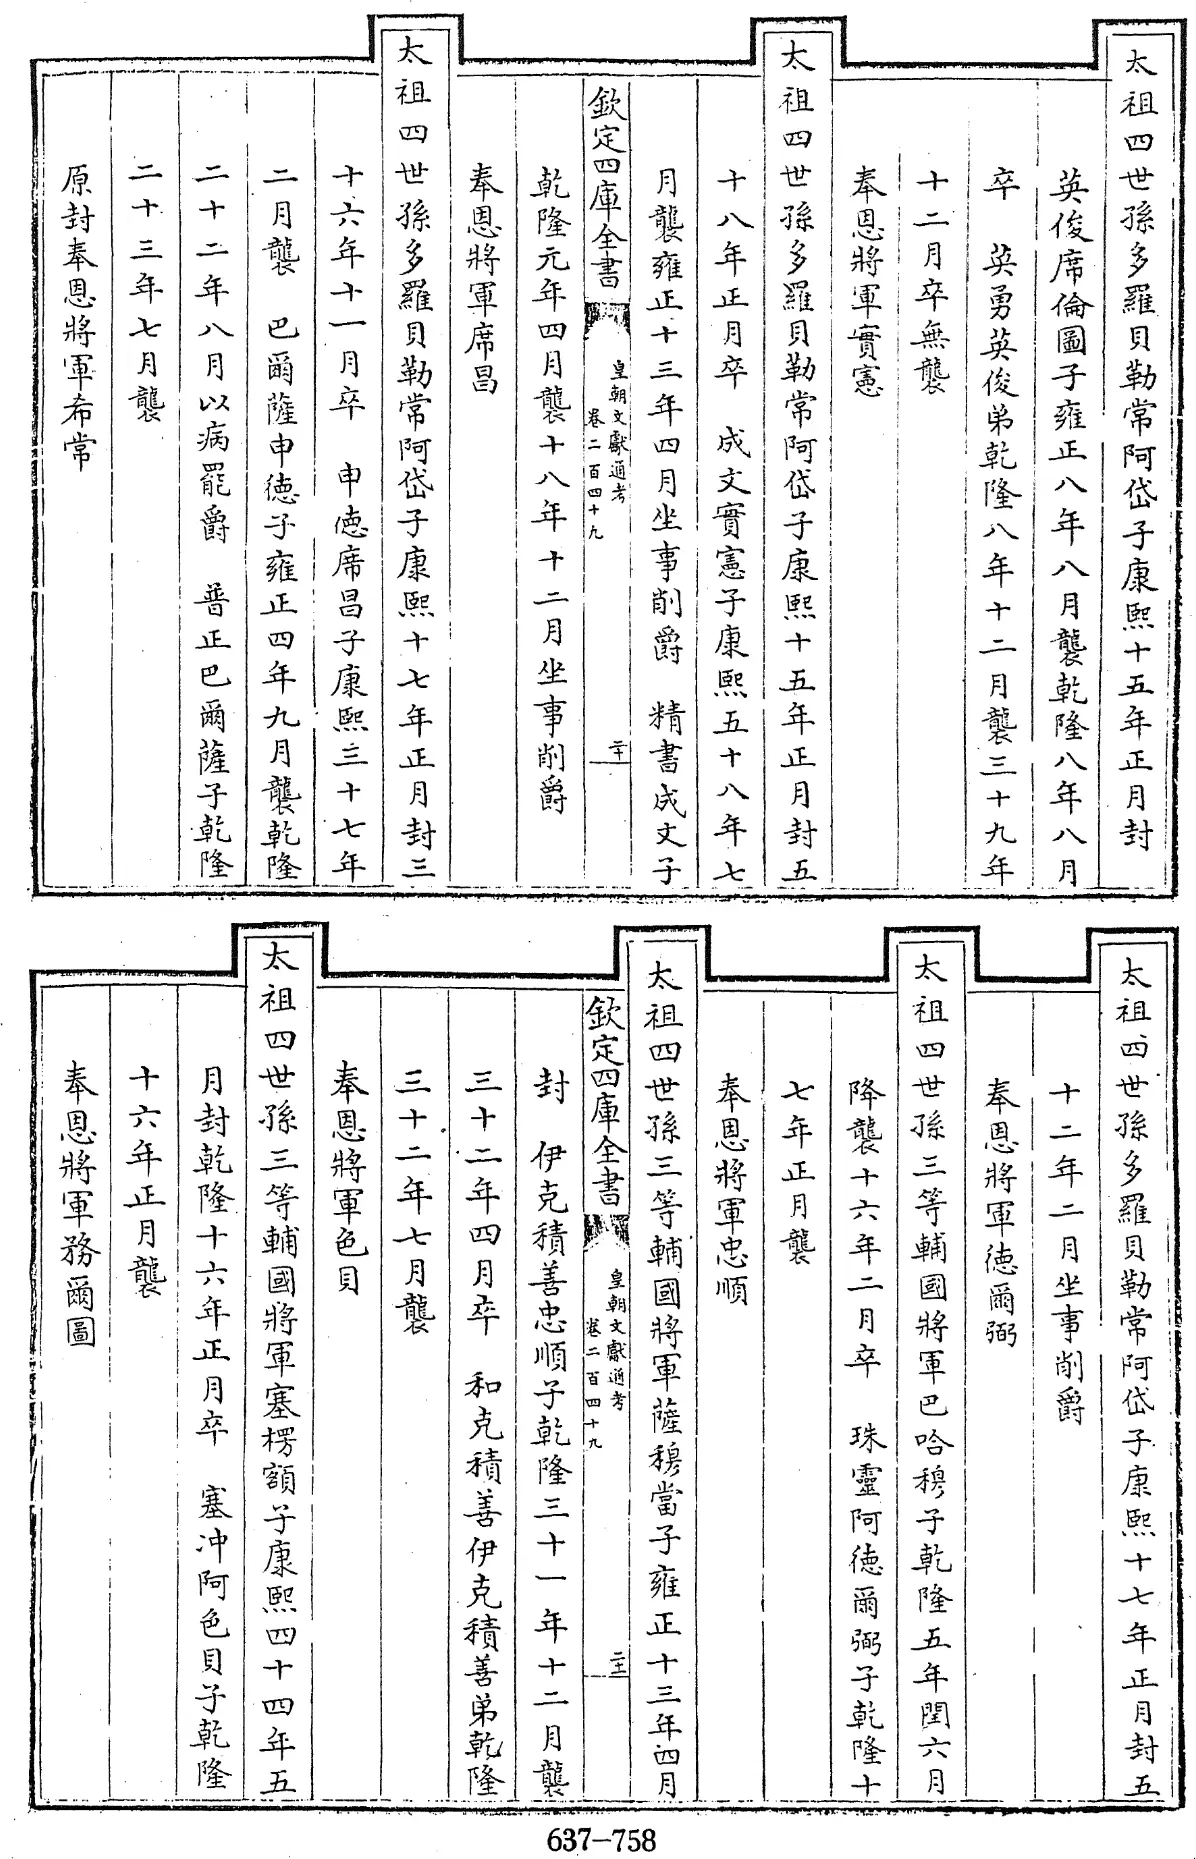 太祖四世孫多羅貝勒常阿岱子康熙十五年正月封
英俊席倫圖子雍正八年八月襲乾隆八年八月
卒　英勇英俊弟乾隆八年十二月襲三十九年
十二月卒無襲
奉恩將軍實憲
太祖四世孫多羅貝勒常阿岱子康熙十五年正月封五
十八年正月卒　成文實憲子康熙五十八年七
月襲雍正十三年四月坐事削爵　精書成文子
欽定四庫全書
皇朝文獻通考
卷二百四十九
二十
乾隆元年四月襲十八年十二月坐事削爵
奉恩將軍席昌
太祖四世孫多羅貝勒常阿岱子康熙十七年正月封三
十六年十一月卒　申德席昌子康熙三十七年
二月襲　巴爾薩申德子雍正四年九月襲乾隆
二十二年八月以病罷爵　普正巴爾薩子乾隆
二十三年七月襲
原封奉恩將軍希常
太祖四世孫多羅貝勒常阿岱子康熙十七年正月封五
十二年二月坐事削爵
奉恩將軍德爾弼
太祖四世孫三等輔國將軍巴哈穆子乾隆五年閏六月
降襲十六年二月卒　珠靈阿德爾弼子乾隆十
七年正月襲
奉恩將軍忠順
太祖四世孫三等輔國將軍薩穆當子雍正十三年四月
欽定四庫全書
皇朝文獻通考
卷二百四十九
二十一
封　伊克積善忠順子乾隆三十一年十二月襲
三十二年四月卒　和克積善伊克積善弟乾隆
三十二年七月襲
奉恩將軍色貝
太祖四世孫三等輔國將軍塞楞額子康熙四十四年五
月封乾隆十六年正月卒　塞冲阿色貝子乾隆
十六年正月襲
奉恩將軍務爾圖
637—758